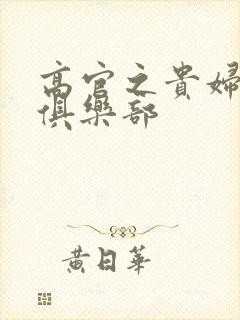 高官之貴婦
俱樂部
黃日華